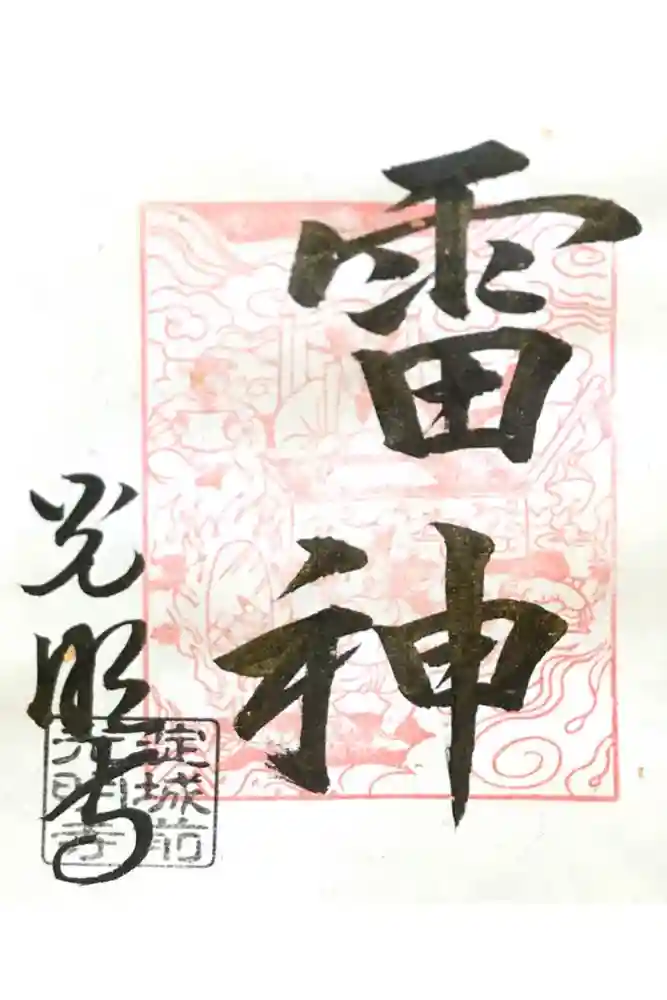 雷神
光明寺
淀城前
光明寺